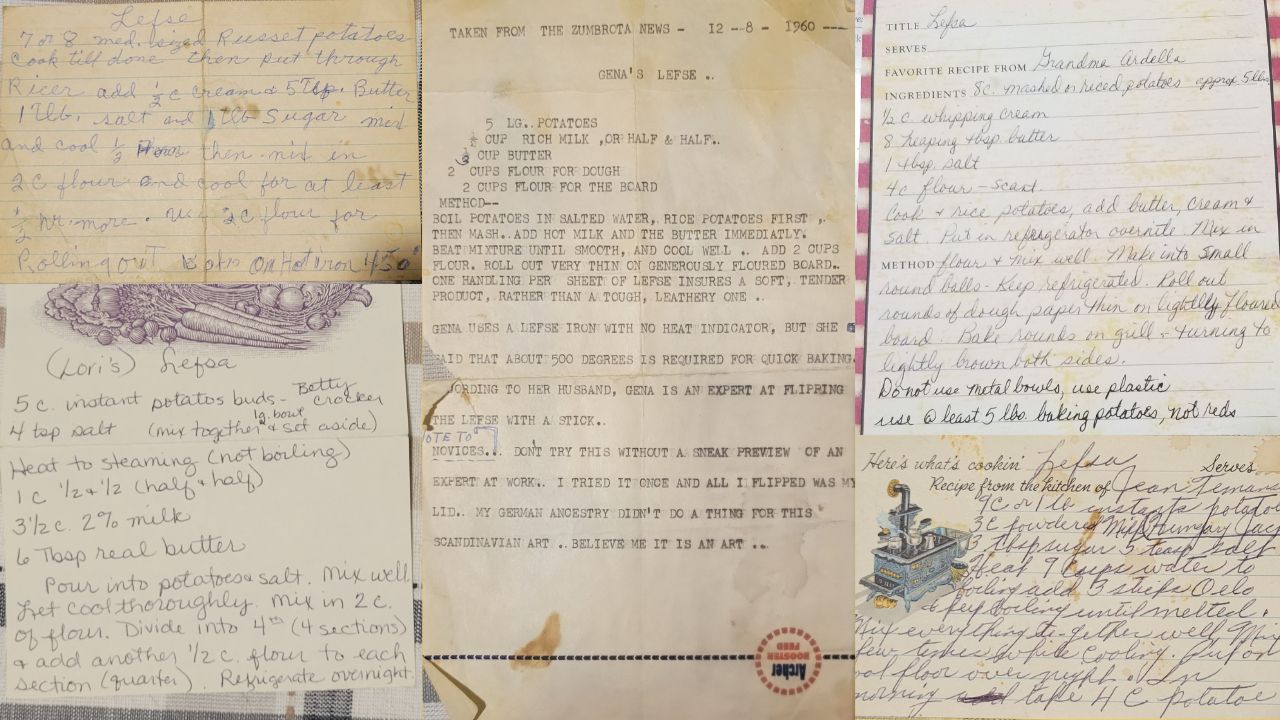 Lefse
7 or 8 med. sized Russet potatoes
Cook till done then put through
Ricer add ½ c cream & 5 Tsp. Butter
1 Tlb. salt and 1 Tlb Sugar mix
and cool ½ Hour then mix in
2 c flour and cool for at least
½ hr. more. Use ½ c flour for
Rolling out Hot Iron 450°
(Lori's) Lefsa
5 c. instant potatos buds - Betty Crocker
4 tsp salt (mix together lg. bowl & set aside)
Heat to steaming (not boiling)
1 c ½ & ½ (half & half)
3 ½ c. 2% milk
6 Tbsp real butter
Pour into potatoes & salt. Mix well.
Let cool thoroughly. Mix in 2 c.
of flour. Divide into 4th (4 sections)
& add another ½ c. flour to each
section (quarter). Refrigerate overnight.
TAKEN FROM THE ZUMBROTA NEWS - 12 --8 - 1960 ---
GENA'S LEFSE ..
5 LG.. POTATOES
CUP RICH MILK ,OR HALF & HALF..
CUP BUTTER
2 CUPS FLOUR FOR DOUGH
2 CUPS FLOUR FOR THE BOARD
METHOD--
BOIL POTATOES IN SALTED WATER,. RICE POTATOES FIRST ,.
THEN MASH.. ADD HOT MILK AND THE BUTTER IMMEDIATLY.
BEAT MIXTURE UNTIL SMOOTH, AND COOL WELL .. ADD 2 CUPS
FLOUR. ROLL OUT VERY THIN ON GENEROUSLY FLOURED BOARD..
ONE HANDLING PER SHEET OF LEFSE INSURES A SOFT, TENDER
PRODUCT, RATHER THAN A TOUGH, LEATHERY ONE ..
GENA UBES A LEFSE IRON WITH NO HEAT INDICATOR, BUT SHE
SAID THAT ABOUT 500 DEGREES IS REQUIRED FOR QUICK BAKING.
CORDING TO HER HUSBAND, GENA IS AN EXPERT AT FLIPPING
THE LEFSE WITH A STICK..
OTE TO
NOVICES.. DON'T TRY THIS WITHOUT A SNEAK PREVIEW OF AN
EXPERT AT WORK.. I TRIED IT ONCE AND ALL I FLIPPED WAS MY
LID.. MY GERMAN ANCESTRY DIDN'T DO A THING FOR THIS
SCANDINAVIAN ART .. BELIEVE ME IT IS AN ART ..
Archer
BOOSTER
FEED
TITLE Lefsa
SERVES
FAVORITE RECIPE FROM Grandma Ardella
INGREDIENTS 8c. mashed or riced potatoes approx 5 lbs
½ c. whipping cream
8 heaping tbsp. butter
1 tbsp. salt
4c flour - scant.
Cook & rice potatoes, add butter, cream &
salt. Put in refrigerator overnite. Mix in
METHOD flour & mix well. Make into small
round balls - Keep refrigerated. Roll out
rounds of dough paper thin on lightly floured
board. Bake rounds on grill - turning to
lightly brown both sides.
Do not use metal bowls, use plastic
use @ least 5 lbs. baking potatoes, not reds
Here's what's cookin' Lefsa Serves
Recipe from the kitchen of Jean
9C or 1 lb instants potatoe
3C powdered Milk Hungary Jac
3 tbsp sugar 5 teasp Salt
Heat 9 cups water to
boiling add 3 strips Oelo
& keep boiling until melted.
Mix everything to-gether well.
few times while cooling.
floor over night. In
morning take 4 c potatoe